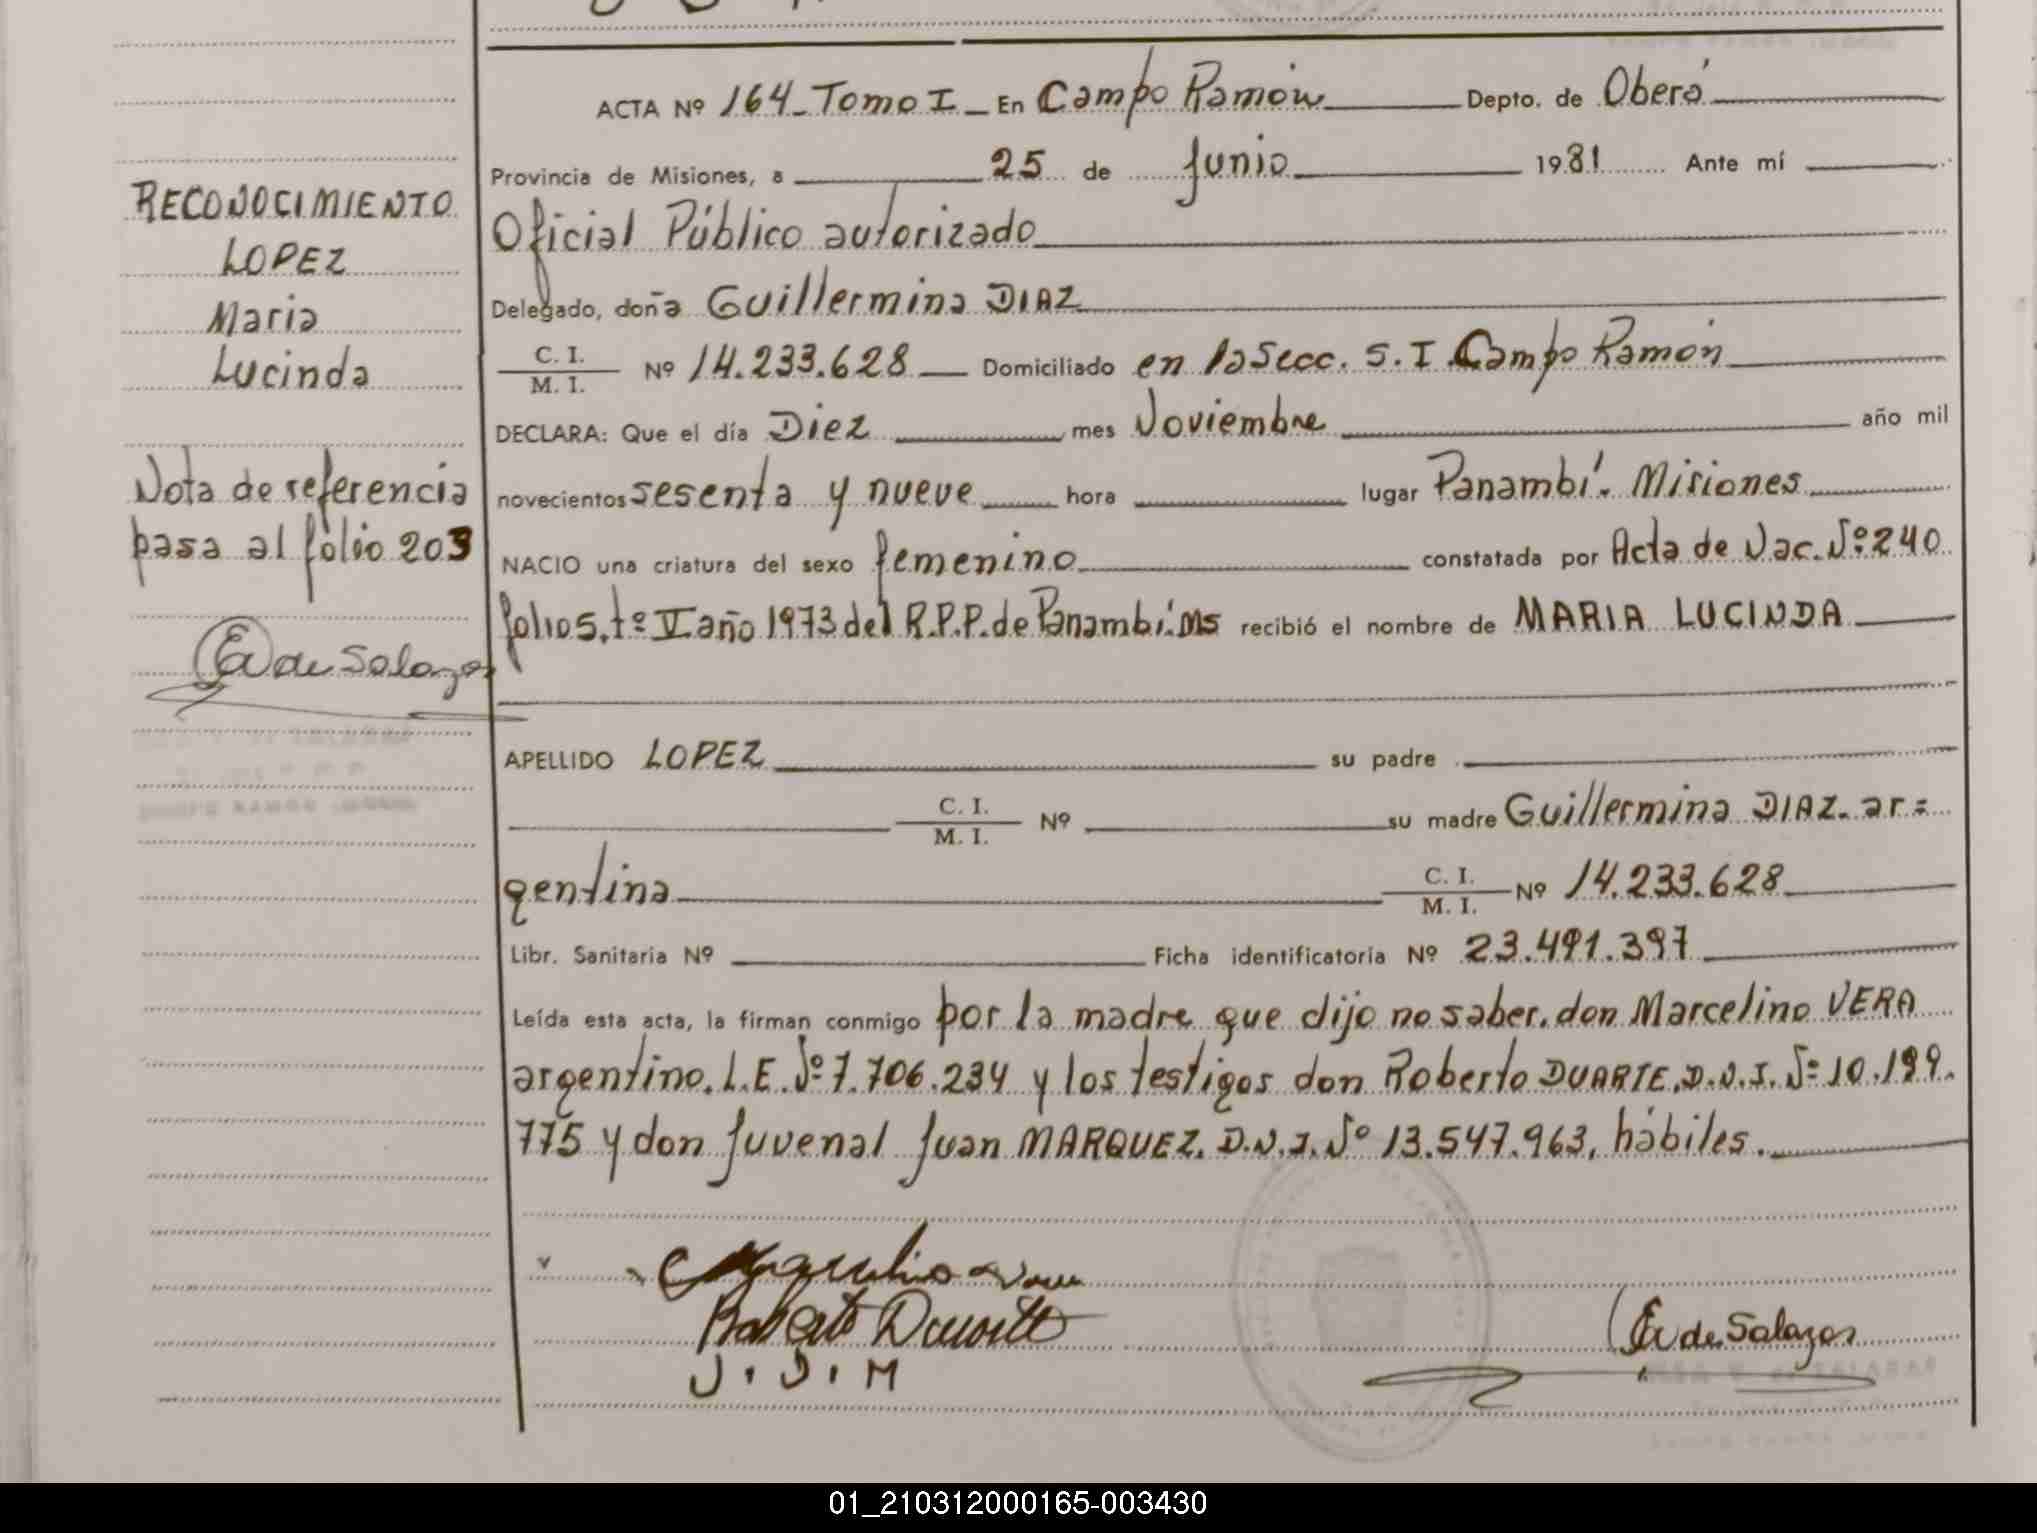 ACTA Nº 164 - Tomo I - En Campo Ramón Depto. de Oberá
Provincia de Misiones, a 25 de Junio 1981 Ante mí
RECONOCIMIENTO
Oficial Público autorizado
LOPEZ
Delegado, doña Guillermina DIAZ
Maria
C. I.
M. I. Nº 14.233.628 Domiciliado en la Secc. S. I Campo Ramón
Lucinda
DECLARA: Que el día Diez mes Noviembre año mil
Nota de referencia
novecientos sesenta y nueve hora lugar Panambí. Misiones
pasa al folio 203
NACIO una criatura del sexo femenino constatada por Acta de Nac. Nº 240
folio 5, tº V año 1973 del R.P.P. de Panambí. Ms recibió el nombre de MARIA LUCINDA
E de Salazar
APELLIDO LOPEZ su padre
C. I.
M. I. Nº su madre Guillermina DIAZ. ar=
gentina C. I.
M. I. Nº 14.233.628
Libr. Sanitaria Nº Ficha identificatoria Nº 23.491.397
Leída esta acta, la firman conmigo por la madre que dijo no saber, don Marcelino VERA
argentino. L.E. Nº 7.706.234 y los testigos don Roberto DUARTE, D.N.I. Nº 10.199.
775 y don Juvenal Juan MARQUEZ. D.N.I. Nº 13.547.963, hábiles.
Marcelino Vera
Roberto Duarte
E de Salazar
J. J. M
01_210312000165-003430